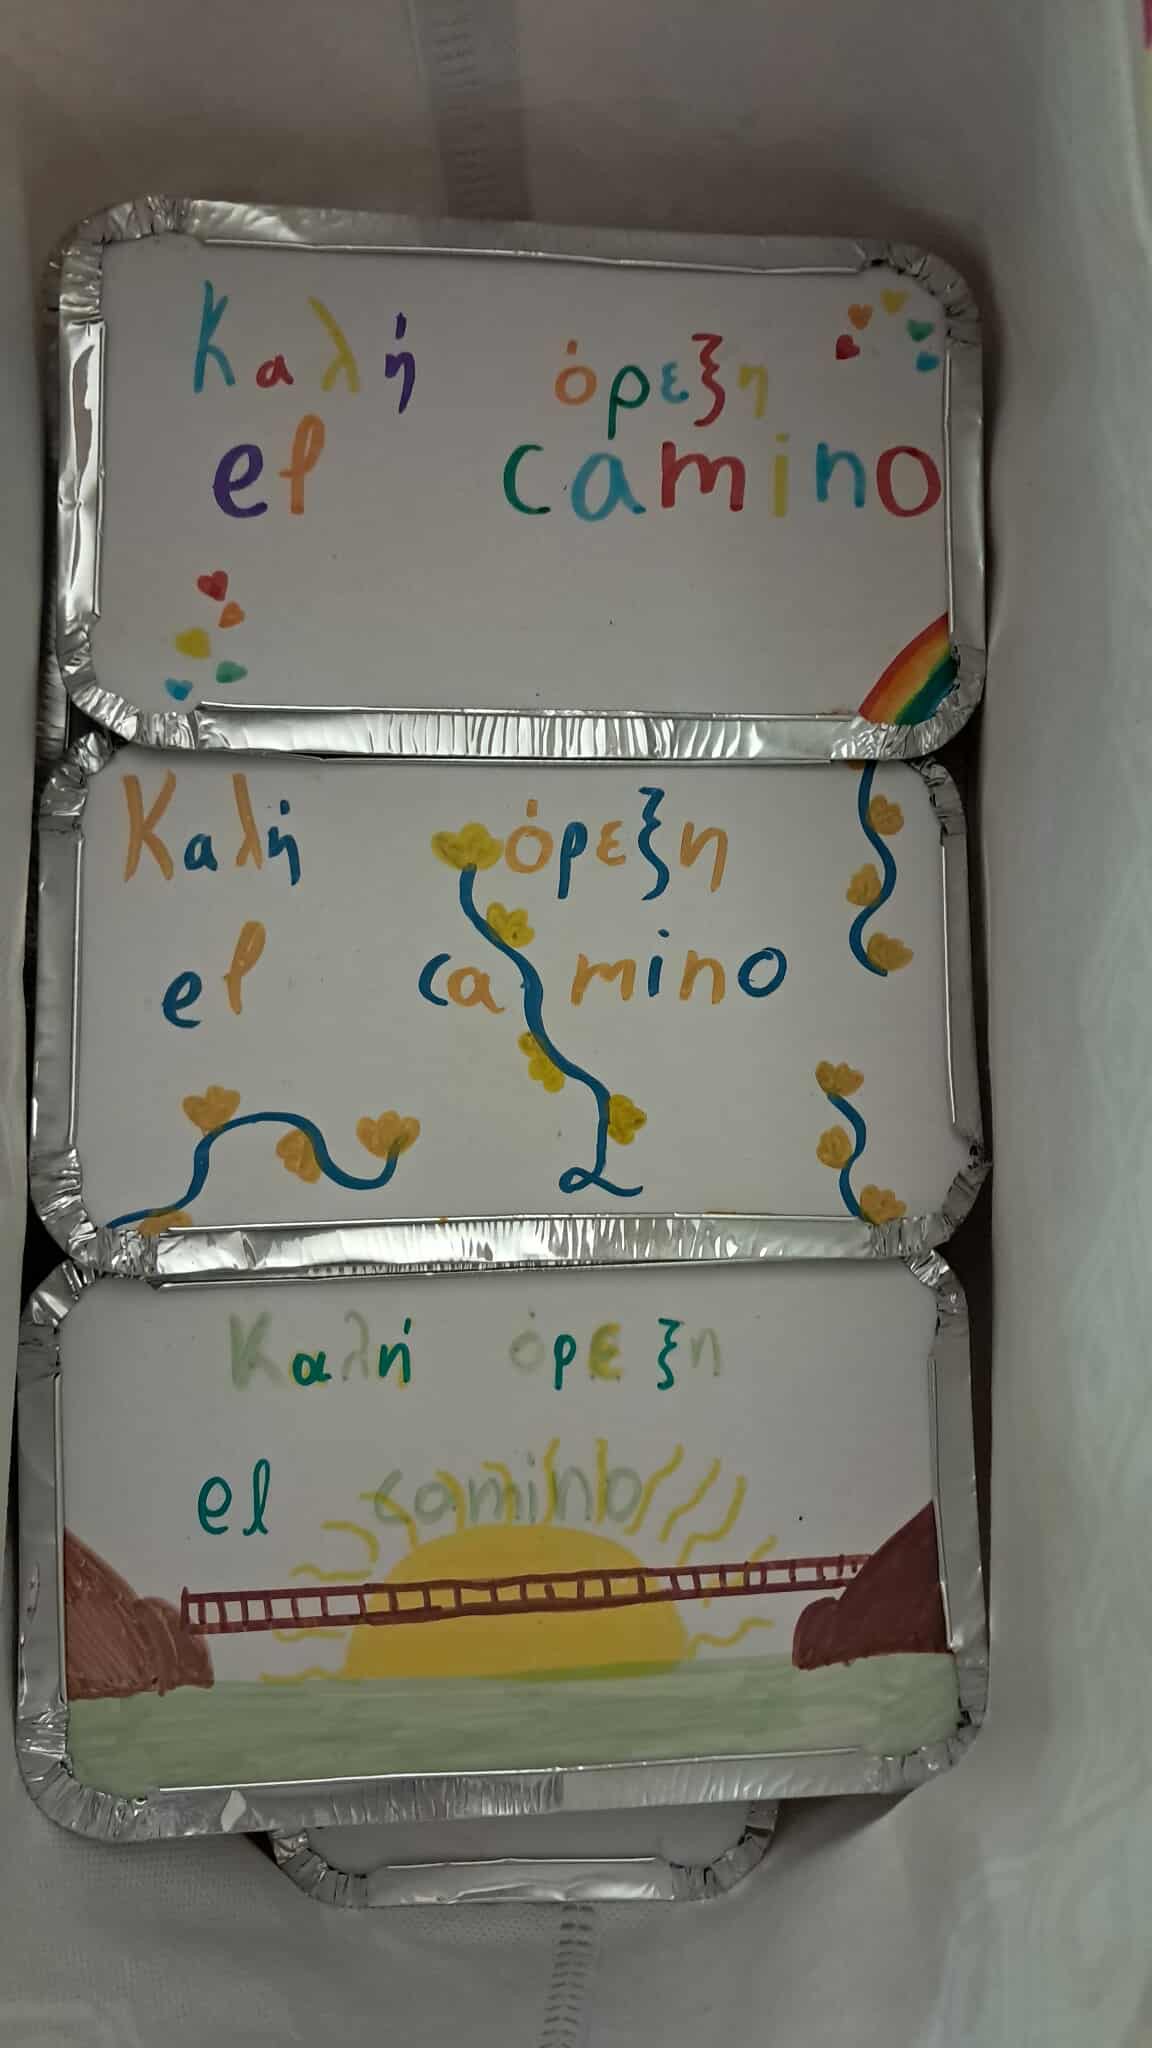 Καλή όρεξη
el camino
Καλή όρεξη
el camino
Καλή όρεξη
el camino